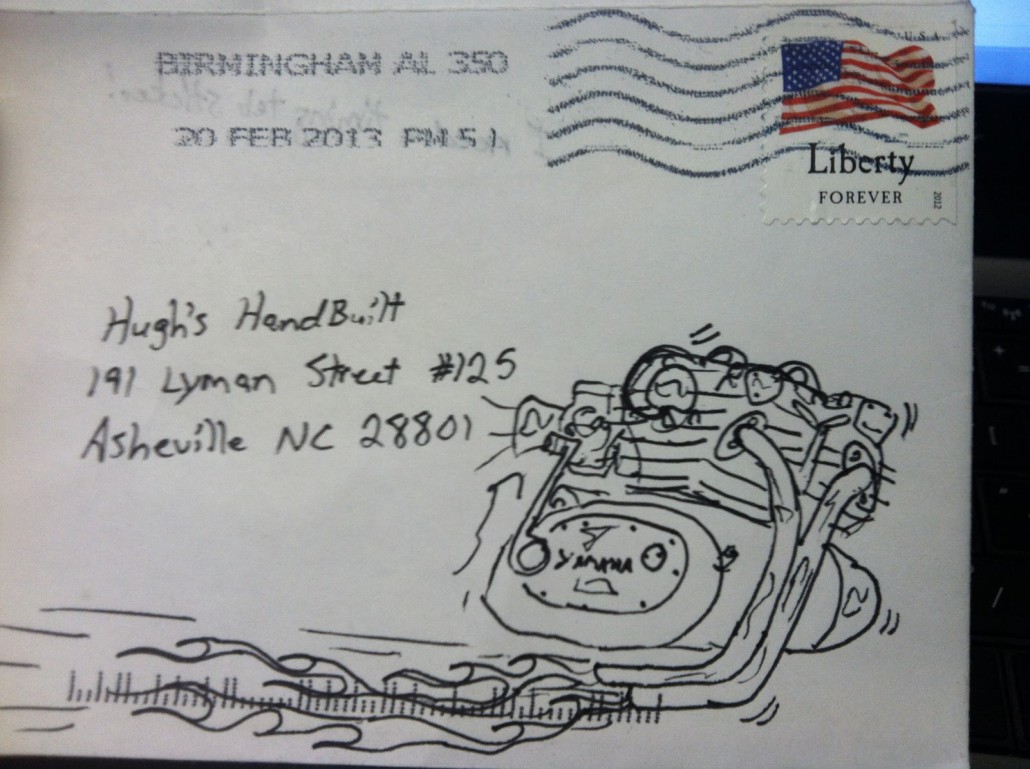 BIRMINGHAM AL 350
20 FEB 2013 PM 5 L
U.S.A.
Liberty
FOREVER
2012
Hugh's HandBuilt
191 Lyman Street #125
Asheville NC 28801
YAMAHA